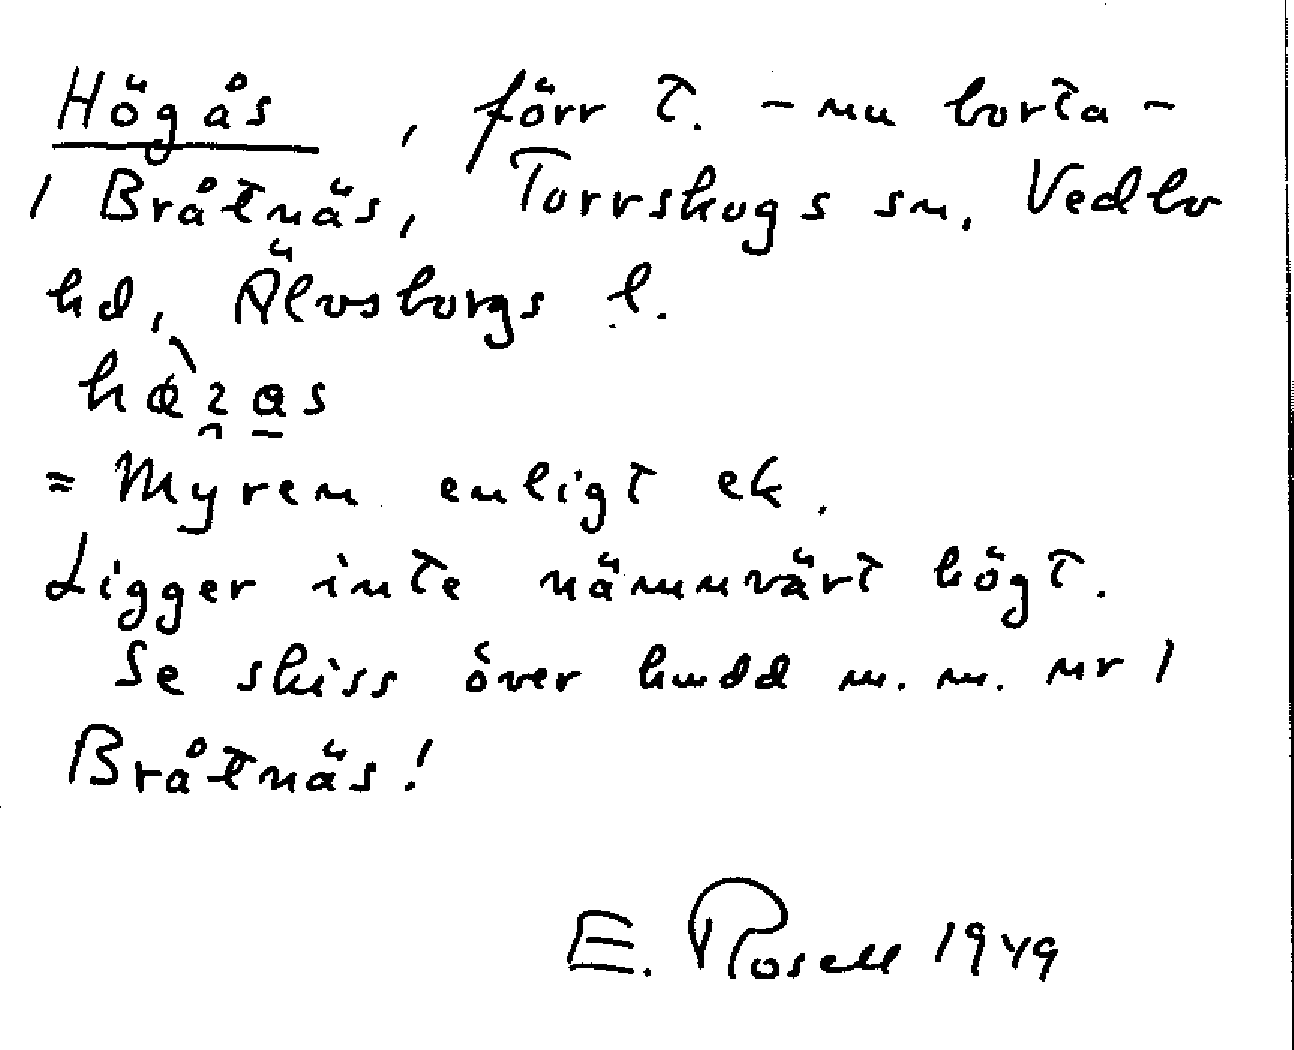 Högås, förr t. - nu borta -
1 Bråtnäs, Torrskogs sn. Vedbo
hd, Älvsborgs l.
= Myren enligt ek.
Ligger inte nämnvärt högt.
Se skiss över hmdd m. m. nr 1
Bråtnäs!
E. Rosell 1949